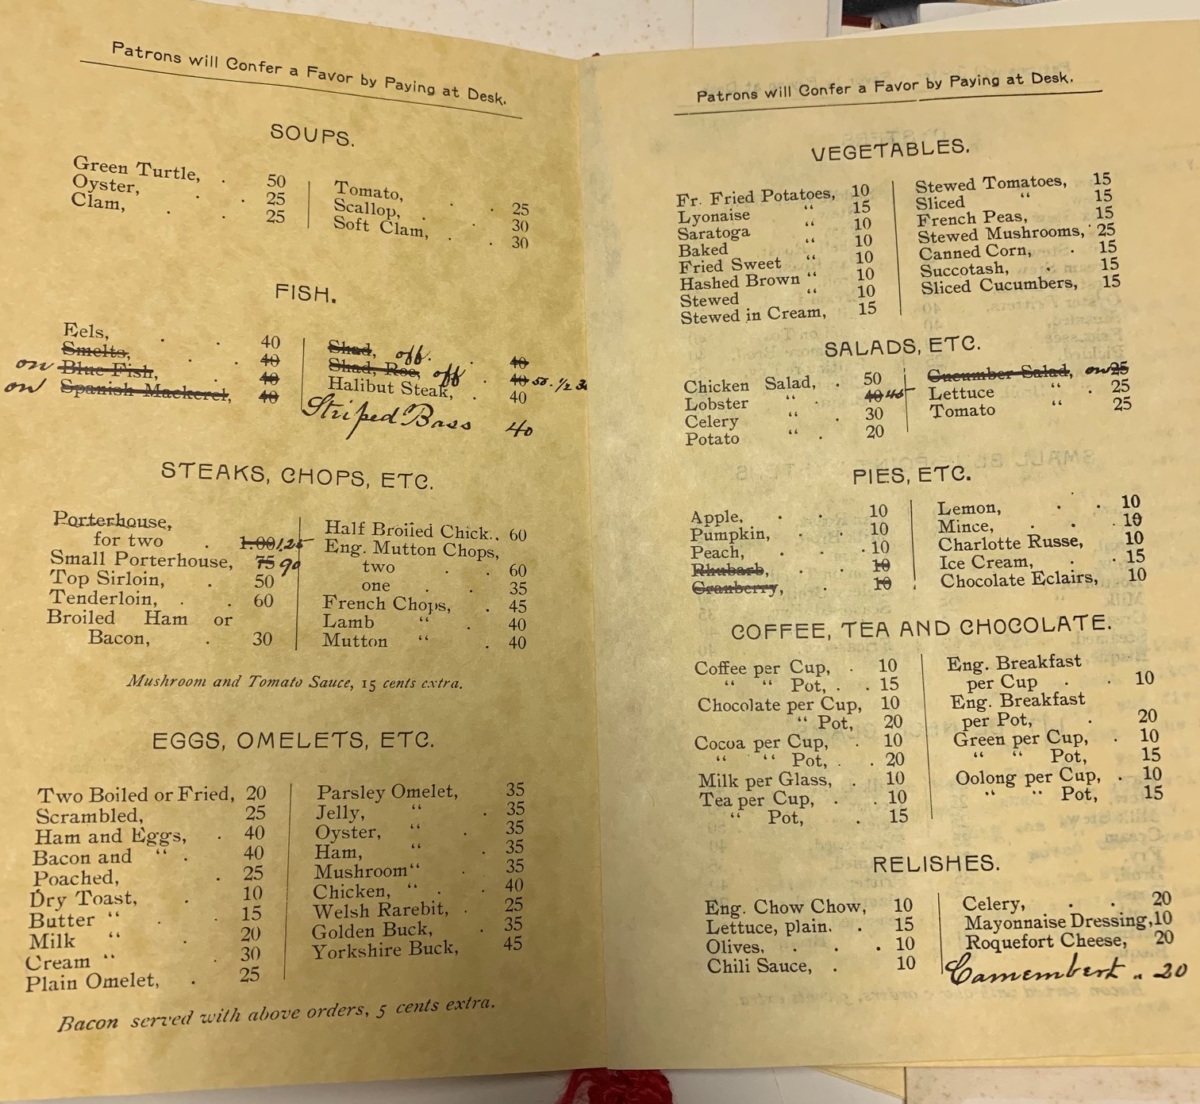 Patrons will Confer a Favor by Paying at Desk.
SOUPS.
Green Turtle, . 50
Oyster, . . 25
Clam, . . 25
Tomato, . . 25
Scallop, . . 30
Soft Clam, . . 30
FISH.
Eels, . . 40
Smelts, . . 40
on Blue Fish, . 40
on Spanish Mackerel, 40
Shad, off. 40
Shad, Roe, off . 40 50. 1/2 30
Halibut Steak, . 40
Striped Bass 40
STEAKS, CHOPS, ETC.
Porterhouse,
for two . 1.00 1.25
Small Porterhouse, 75 90
Top Sirloin, . 50
Tenderloin, . . 60
Broiled Ham or
Bacon, . 30
Half Broiled Chick.. 60
Eng. Mutton Chops,
two . . 60
one . . 35
French Chops, . 45
Lamb “ . 40
Mutton “ . 40
Mushroom and Tomato Sauce, 15 cents extra.
EGGS, OMELETS, ETC.
Two Boiled or Fried, 20
Scrambled, 25
Ham and Eggs, . 40
Bacon and “ . 40
Poached, . 25
Dry Toast, . 10
Butter “ . 15
Milk “ . 20
Cream “ . 30
Plain Omelet, . 25
Parsley Omelet, 35
Jelly, “ . 35
Oyster, “ . 35
Ham, “ . 35
Mushroom “ . 35
Chicken, “ . 40
Welsh Rarebit, . 25
Golden Buck, . 35
Yorkshire Buck, 45
Bacon served with above orders, 5 cents extra.
Patrons will Confer a Favor by Paying at Desk.
VEGETABLES.
Fr. Fried Potatoes, 10
Lyonaise “ 15
Saratoga “ 10
Baked “ 10
Fried Sweet “ 10
Hashed Brown “ 10
Stewed “ 10
Stewed in Cream, 15
Stewed Tomatoes, 15
Sliced “ 15
French Peas, 15
Stewed Mushrooms, 25
Canned Corn, . 15
Succotash, . 15
Sliced Cucumbers, 15
SALADS, ETC.
Chicken Salad, . 50
Lobster “ . 40 45
Celery “ 30
Potato “ . 20
Cucumber Salad, on 25
Lettuce “ . 25
Tomato “ 25
PIES, ETC.
Apple, . . 10
Pumpkin, . . 10
Peach, . . 10
Rhubarb, . 10
Cranberry, . 10
Lemon, . . 10
Mince, . . . 10
Charlotte Russe, 10
Ice Cream, . . 15
Chocolate Eclairs, 10
COFFEE, TEA AND CHOCOLATE.
Coffee per Cup, . 10
“ “ Pot, . . 15
Chocolate per Cup, 10
“ Pot, 20
Cocoa per Cup, . 10
“ “ Pot, . . 20
Milk per Glass, . 10
Tea per Cup, . . 10
“ Pot, . 15
Eng. Breakfast
per Cup . . 10
Eng. Breakfast
per Pot, . 20
Green per Cup, . 10
“ “ Pot, 15
Oolong per Cup, . 10
“ “ Pot, 15
RELISHES.
Eng. Chow Chow, 10
Lettuce, plain. . 15
Olives. . . . 10
Chili Sauce, . 10
Celery, . . 20
Mayonnaise Dressing, 10
Roquefort Cheese, 20
Camembert „ 20